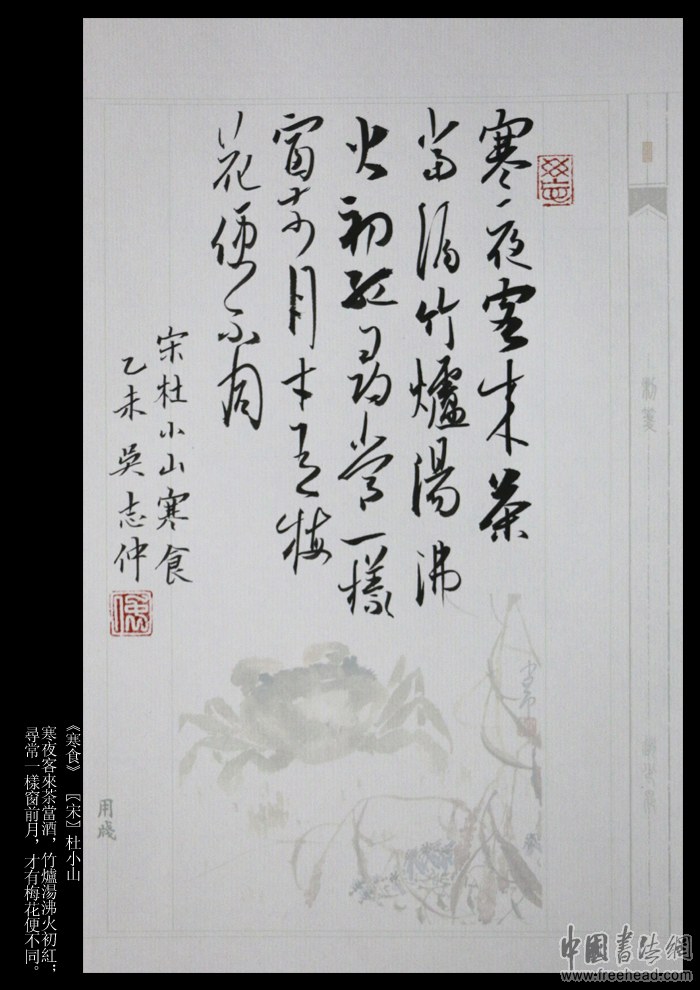 寒夜客來茶
當酒竹爐湯沸
火初紅尋常一樣
窗前月才有梅
花便不同
宋杜小山寒食
乙未吳志仲
用牋
《寒食》〖宋〗杜小山
寒夜客來茶當酒，竹爐湯沸火初紅；
尋常一樣窗前月，才有梅花便不同。
中國書法網
www.freehead.com